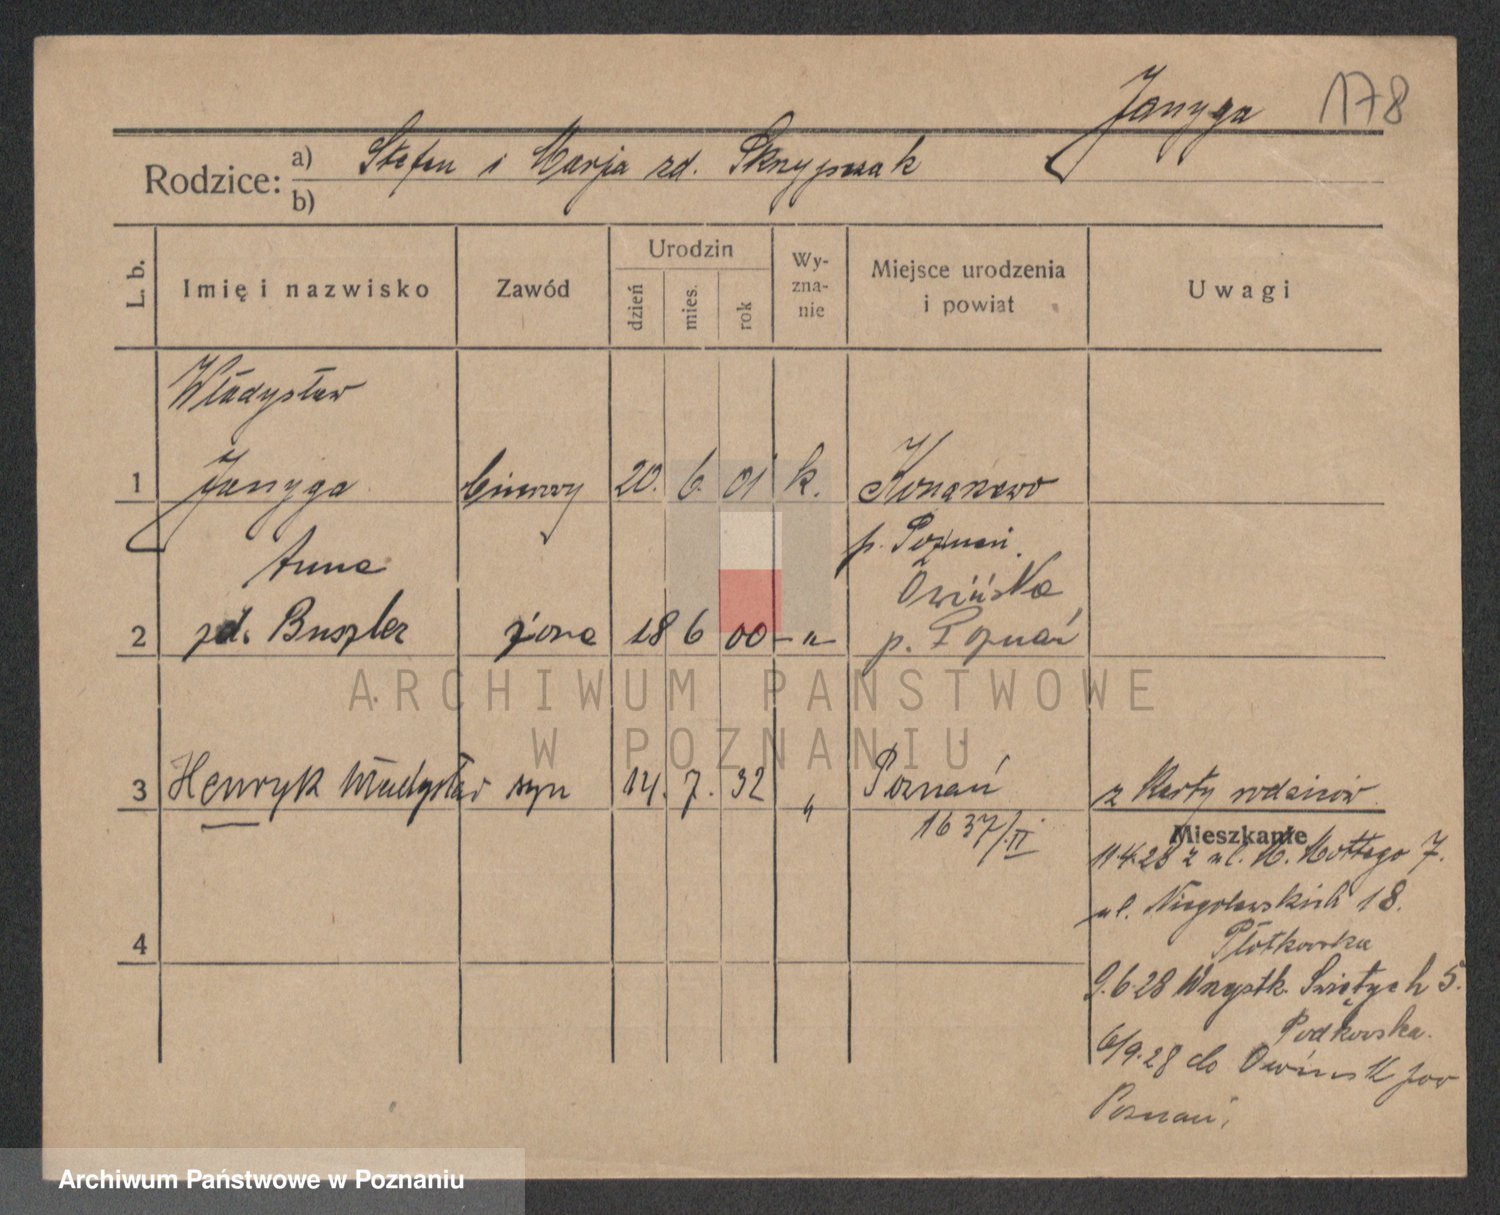 Janyga 178
Rodzice: a) Stefan i Marja zd. Skrzypczak
b)
L. b. Imię i nazwisko Zawód Urodzin dzień mies. rok Wyznanie Miejsce urodzenia i powiat Uwagi
Władysław
1 Janyga 20. 6. 01 k.
p. Poznań.
Anna Owińska
2 zd. Buszler żona 18 6 00 -„- p. Poznań
ARCHIWUM PAŃSTWOWE
W POZNANIU
3 Henryk Władysław syn 14. 7. 32 „ Poznań z karty rodziców
1637/II
Mieszkanie
11.4.28 z ul. M. Mottego 7.
ul. Niegolewskich 18.
Płotkowska
4
9.6.28 Wszystk. Świętych 5.
Podkowska.
6/9.28 do Owińsk pow
Poznań,
Archiwum Państwowe w Poznaniu